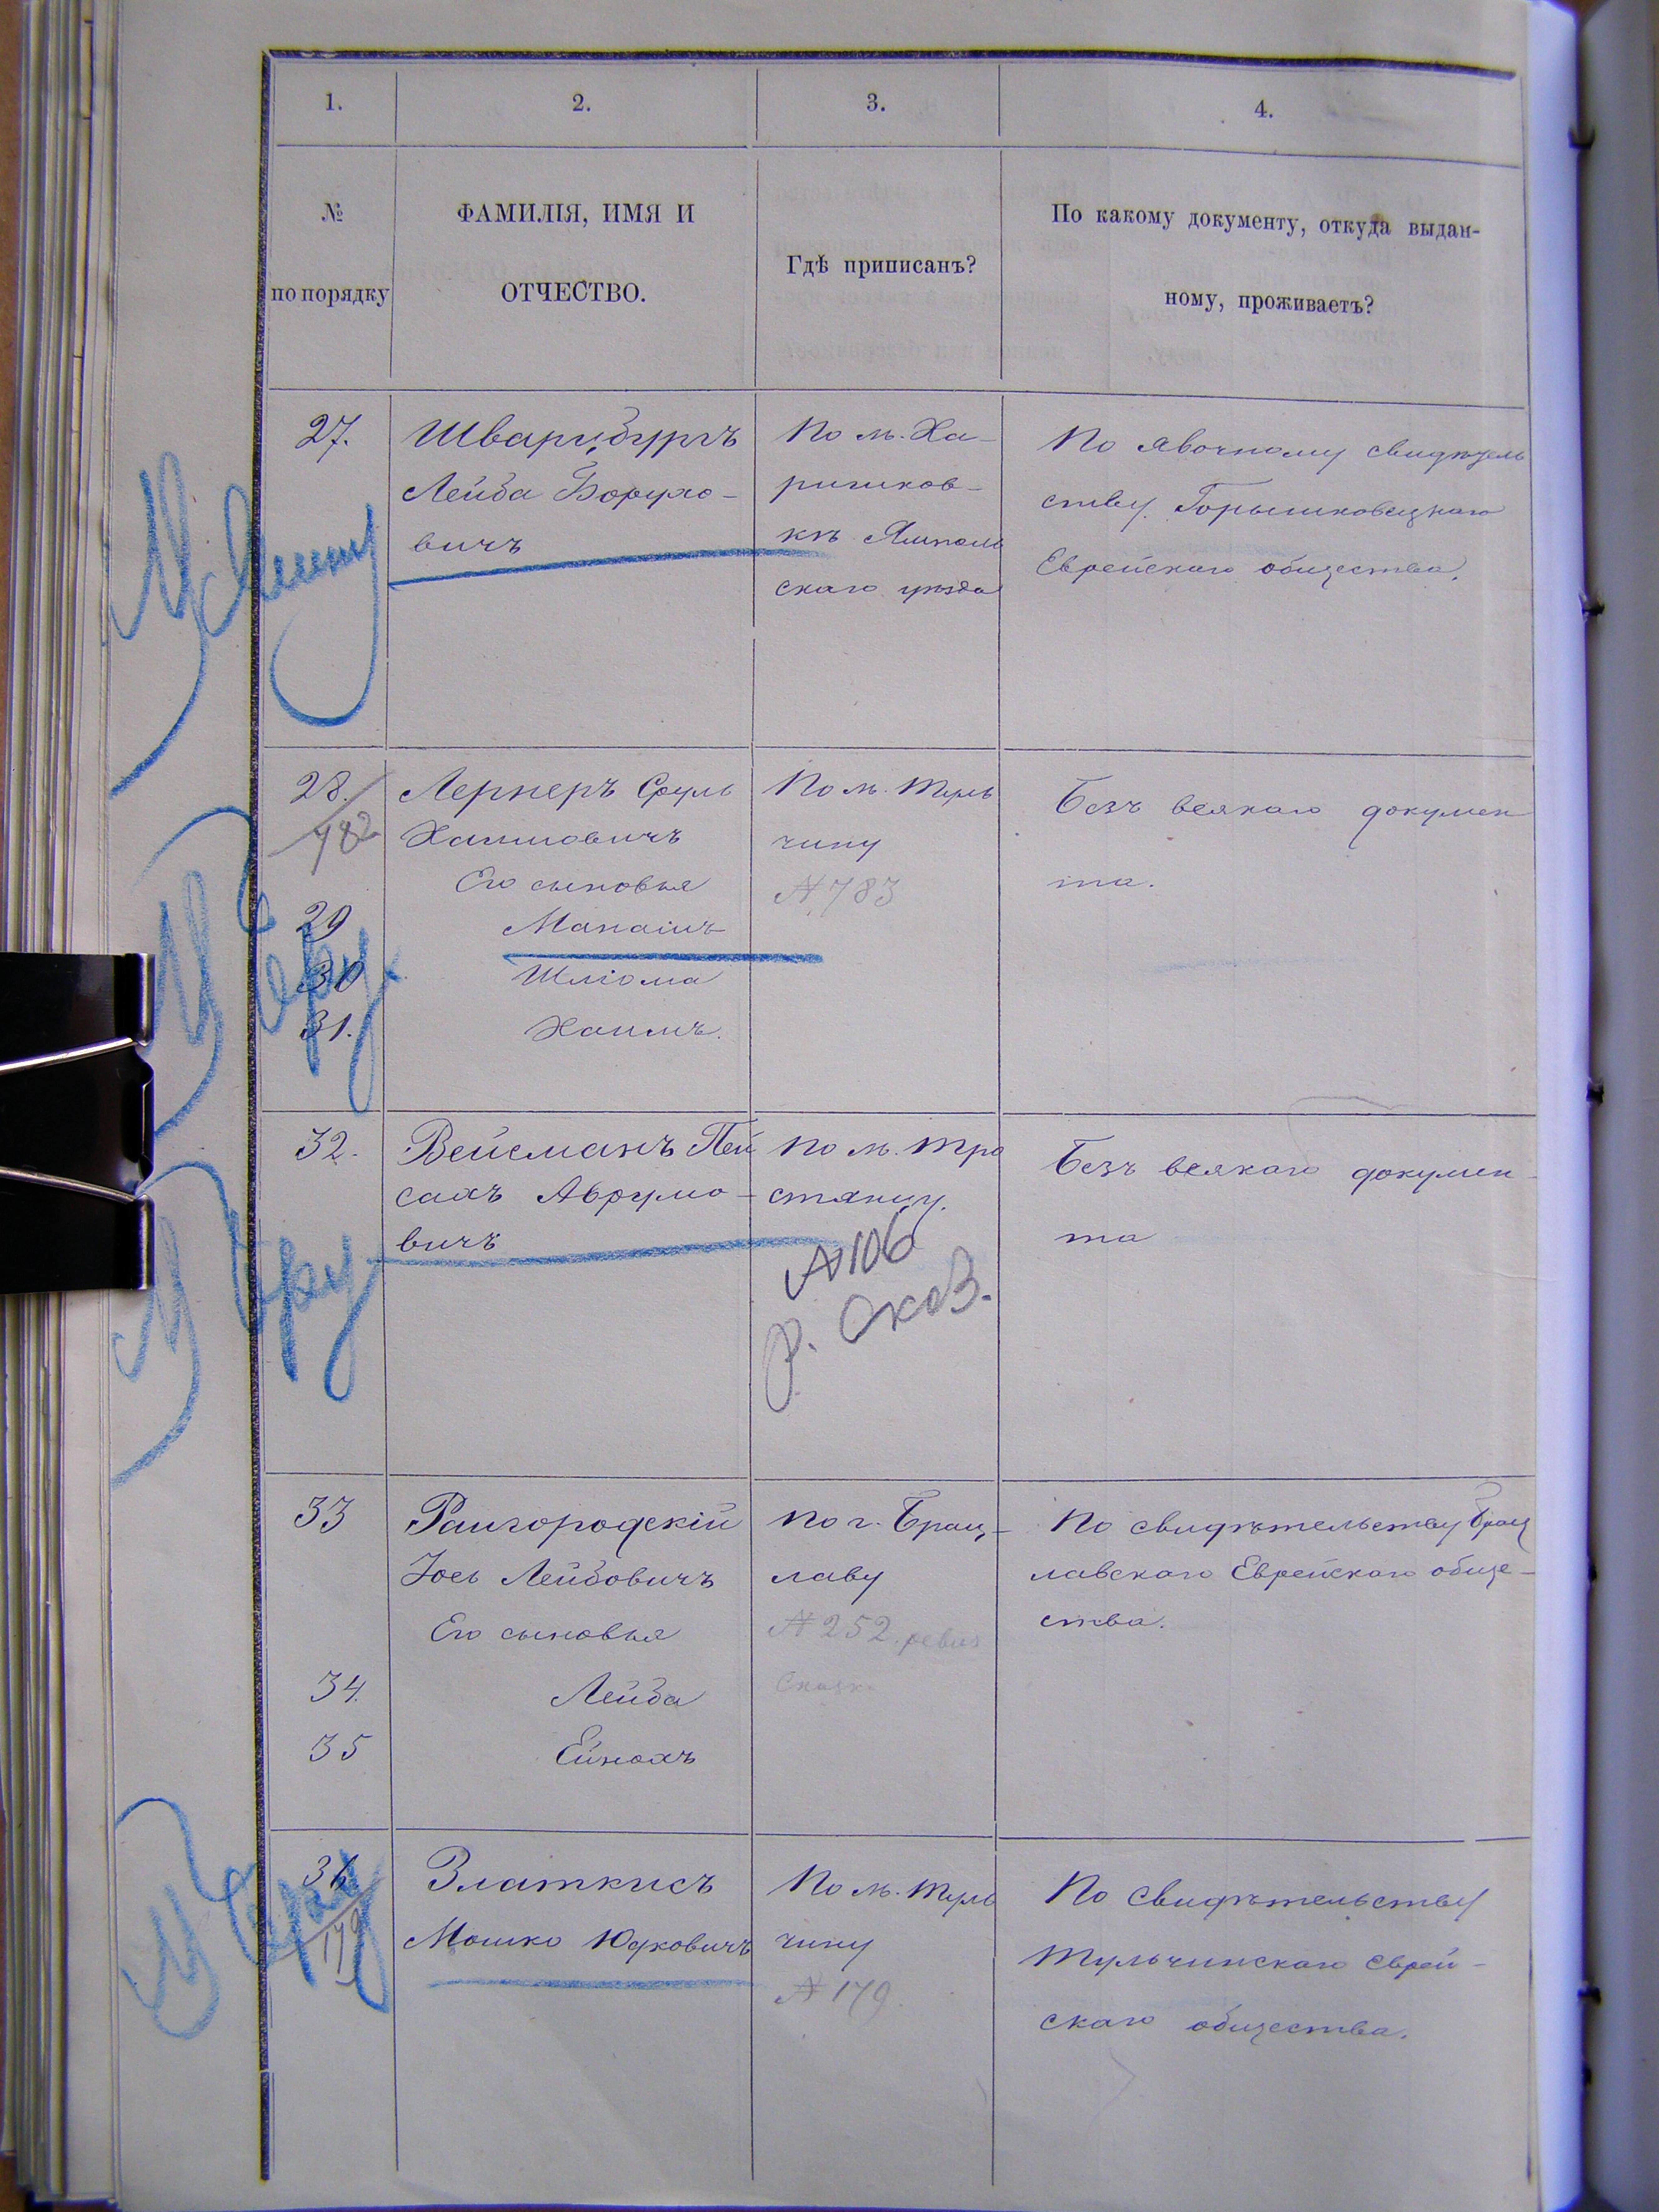 1.
2.
3.
4.
№
по порядку
ФАМИЛІЯ, ИМЯ И
ОТЧЕСТВО.
Гдѣ приписанъ?
По какому документу, откуда выдан-
ному, проживаетъ?
27.
Шварцбургъ
Лейба Борухо-
вичъ
По м. Ха-
ришков-
кѣ Ямполь
скаго уѣзда
По явочному свидѣтель
ству Горышковецкаго
Еврейскаго общества.
28.
782
Лернеръ Сруль
Хаимовичъ
Его сыновья
29
Манаіиъ
30
Шліома
31.
Хаимъ.
По м. Туль
чину
№ 783
Безъ всякаго докумен
та.
32.
Вейсманъ Пей
сахъ Аврумо-
вичъ
По м. Тро
стянцу.
№ 106
р. сказ.
Безъ всякаго докумен-
та
33
Раигородскій
Іось Лейбовичъ
Его сыновья
34.
Лейба
35
Ейнохъ
По г. Брац-
лаву
№ 252 ревиз
Сказк.
По свидѣтельству Брац
лавскаго Еврейскаго обще-
ства.
36
179
Златкисъ
Мошко Юдковичъ
По м. Туль
чину
№ 179.
По свидѣтельству
Тульчинскаго еврей-
скаго общества.